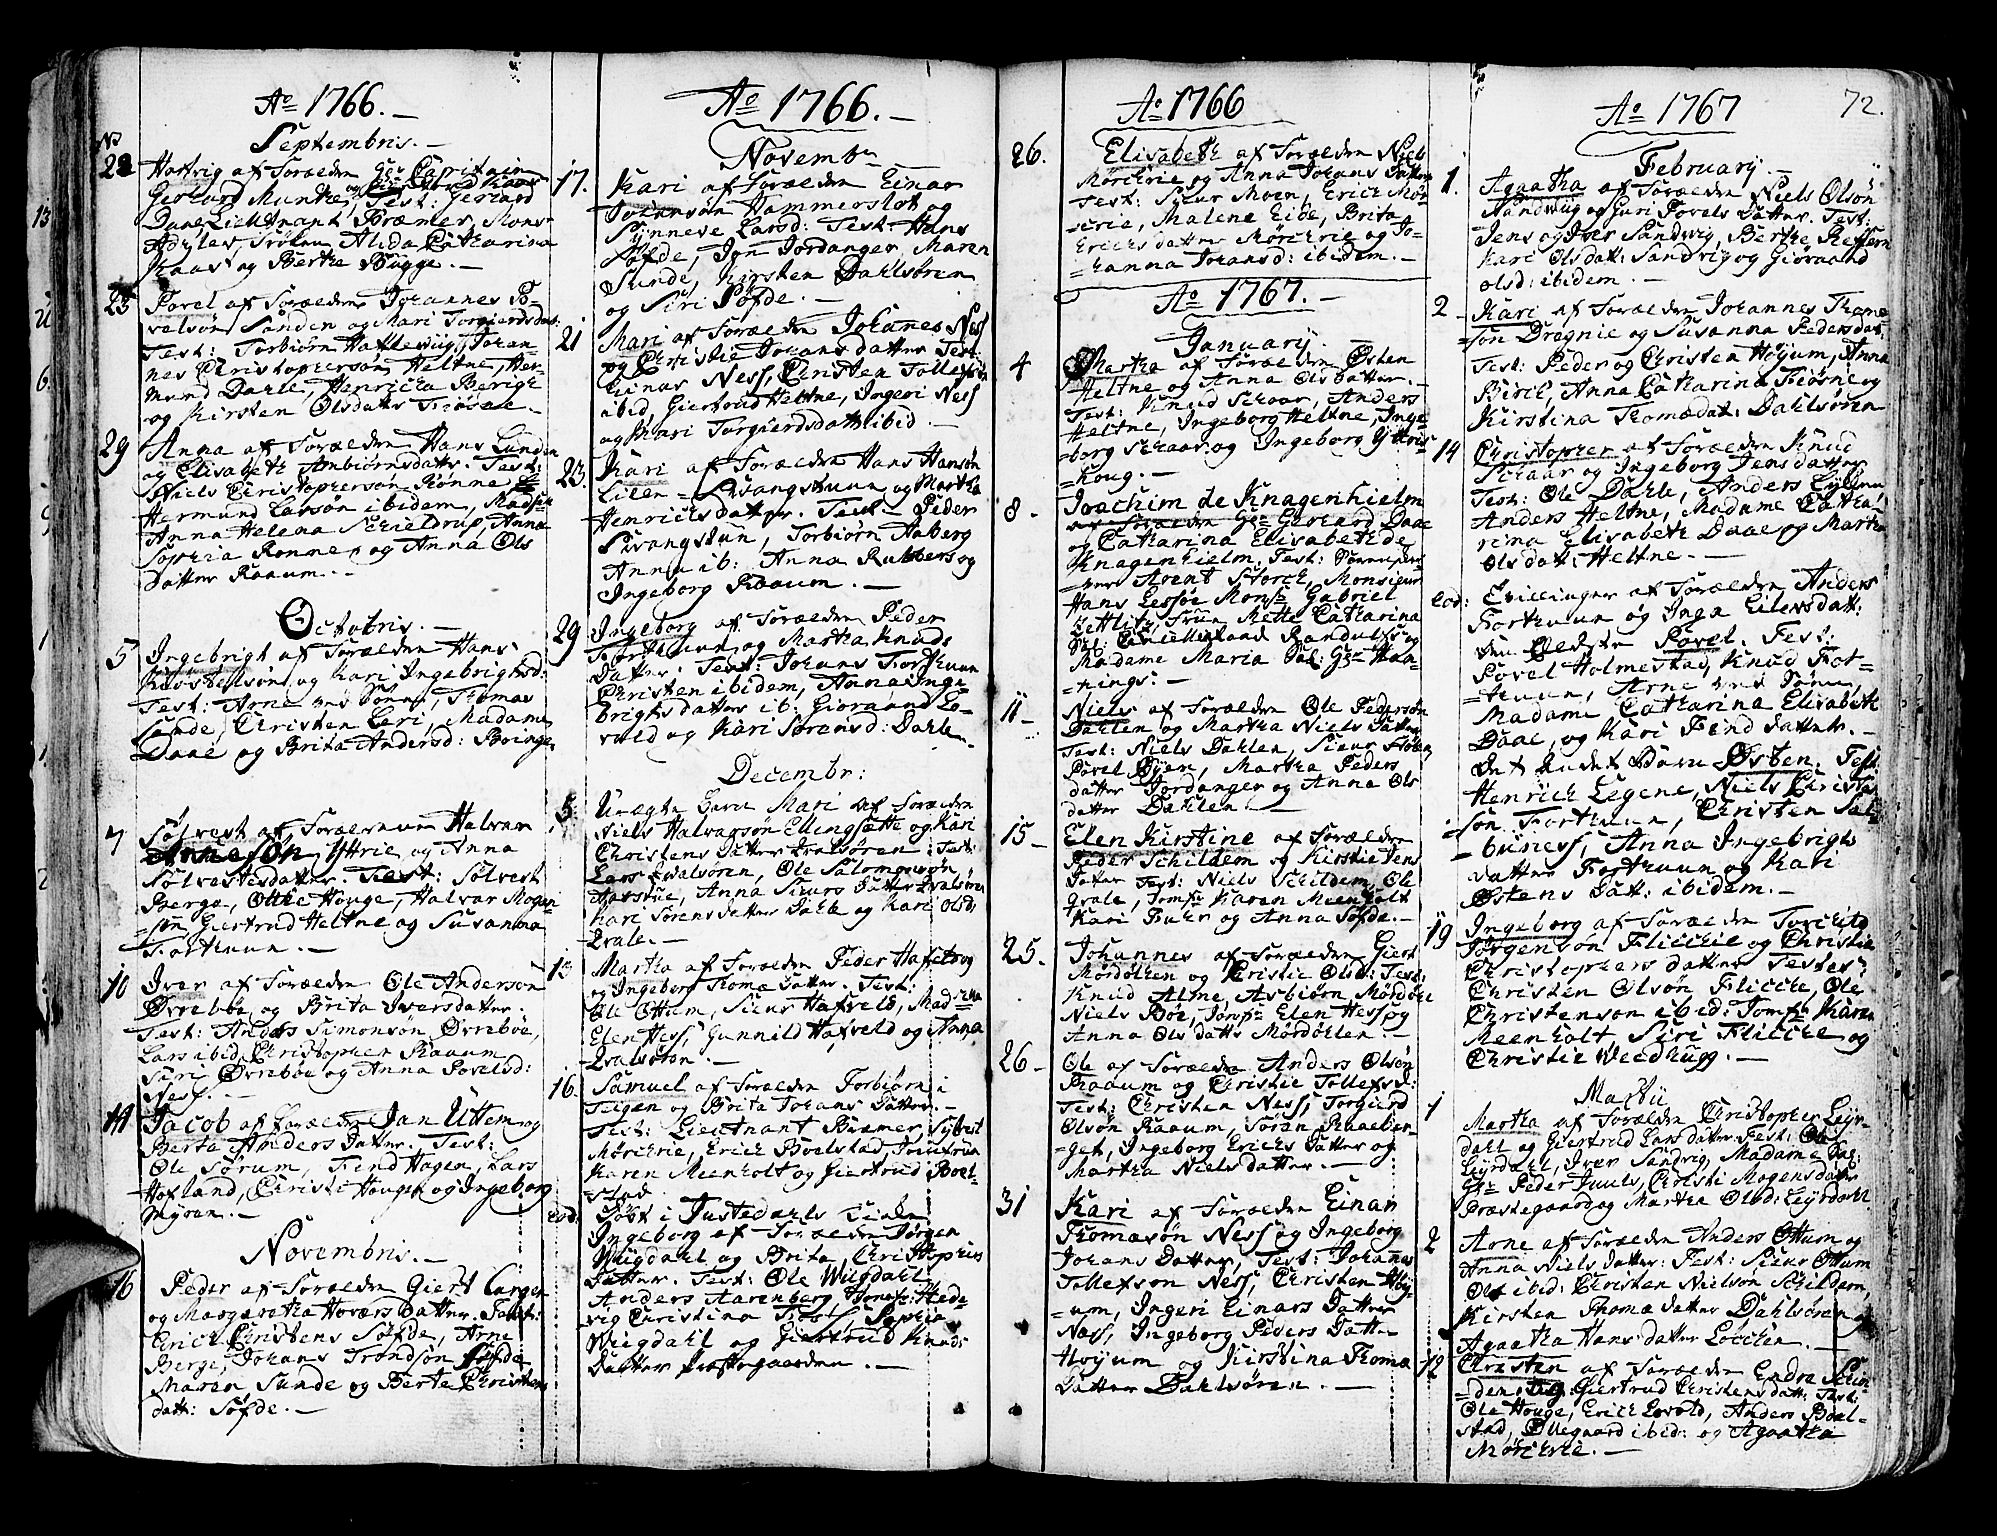 Ao 1766.
Septembris.
22 Hartvig af Forældre Hr Capitain
Gerhard Munthe og
Test: Gerhard
Daae, Lieutnant Bræmer, Mons:
Frøken Alida Catharina
Kaas og Berthe Bügge.
23 Povel af Forældre Johannes Po-
velsøn Sanden og Mari Torgiersdat:
Test: Torbiørn Johan-
nes Christophersøn Heltne, Her-
mund Dahle, Henricha Berige
og Kirsten Olsdatt:
29 Anna af Forældre Hans Lunden
og Elisabeth Ambiørnsdatter. Test:
Niels Christophersøn Rønne
Hermund Larsøn ibidem, Mad:
Anna Helena Schieldrup, Anna
Sophia Rønne, og Anna Ols
Datter Raaum.
Octobris.
5 Ingebrigt af Forældre Hans
og Kari Ingebrigtsd:
Test: Arne Thomas
Christen Madame
Daae og Brita Andersd:
7 Sølvest af Forældrene Halvar
Arnesøn Yttrie og Anna
Sølvestesdatter. Test: Sølvest
Berge, Otthe Houge, Halvar Mogen-
=søn Giertrud Heltne og Susanna
Forthuun.
10 Iver af Forældre Ole Andersøn
Ørrebøe og Brita Iversdatter.
Test: Anders Simonsøn Ørrebøe,
Lars ibid, Christopher Raaum
Siri Ørrebøe og Anna Povelsd:
Ness.
14 Jacob af Forældre Jan Uttem og
Berta Anders Datter. Test:
Ole Sørum, Fend Hagen, Lars
Hofland, Christi Hougen og Ingeborg
Myran.
Novembris.
16 Peder af Forældre Giert
og Margaretha Hovars Datter. Test:
Erich Christens Søfde, Arne
Berge, Johans Trondsøn Søfde
Maren Sunde og Berte Christens
datt: Søfde.
Ao 1766.
Novembr
17. Kari af Forældre Einar
Johansøn Hammerslot og
Synneve Larsd: Test: Hans
Søfde, Jon Jordanger, Maren
Sunde, Kirsten Dahlsøren
og Siri Søfde.
21 Mari af Forældre Johanes Ness
og Christie Johans datter Test:
Einar Ness, Christen Tollefsøn
ibid, Giertrud Heltne, Ingeri Ness
og Kari Torgiersdatt ibid.
23. Kari af Forældre Hans Hansøn
Lilen-Svangstuun og Martha
Henrichsdatter. Test Peder
Svangstun, Torbiørn Aaberg
Anna ib: Anna Rubbers og
Ingeborg Raaum.
29 Ingeborg af Forældre Peder
Forthuun og Martha Knuds
Datter Test: Johans Forthuun
Christen ibidem, Anna Inge-
brigtsdatter ib: Gioraand Lo-
vald og Kari Sørensd: Dahle.
Decembr:
5. Uægte Barn Mari af Forældre
Niels Halvarsøn Ellingsætte og Kari
Christens Datter Qvalsøren. Test:
Lars Qvalsøren, Ole Salomonsøn
Anna Siurs Datter Qvalsøren
Kari Sørensdatter Dahle og Kari Olsd:
Qvale.
13 Martha af Forældre Peder
og Ingeborg Thoma Datter. Test:
Ole Ottum, Siur Hafveld, Mad
Elen Hess, Gunnild Hafveld og Anna
Qvalsøren.
16. Samuel af Forældre Torbiørn i
Teigen og Brita Johans Datter.
Test: Lieutnant Bræmer, Sylvest
Mørchrie, Erich Boelstad, Jomfrue
Karen Meenholt og Giertrud Boel-
stad.
eod: Døbt i Justedahls Kirke
Ingeborg af Forældre Jørgen
Migdahl og Brita Christophers
Datter. Test: Ole Migdahl
Anders Aarenberg, Jomf: Hede-
vig Christina Sophia
Migdahl og Giertrud Knuds
Datter Prestegaarden.
Ao 1766
26. Elisabeth af Forældre Niels
Mørchrie og Anna Johans Datter
Test: Siur Moen, Erich Mør-
=chrie, Malene Eide, Brita
Erichsdatter Mørchrie og Jo-
=hanna Johansd: ibidem.
Ao 1767.
January.
4 Martha af Forældre Østen
Heltne og Anna Olsdatter.
Test: Knud Schaar, Anders
Heltne, Ingeborg Heltne, Inge-
borg Schaar og Ingeborg Yttris
=houg.
8. Joachim de Knagenhielm
af Forældre Hr Gerhard Daae
og Catharina Elisabeth de
Knagenhielm. Test:
Advent Storch, Monsieur
Hans Lessøe Monsr Gabriel
Mette Catharina
Sal.
Madame Maria Sal: Hr Haa-
=kings.
11 Niels af Forældre Ole Pedersøn
Dahlen og Martha Niels Datter
Test: Niels Dahlen, Siur
Povel Øien, Martha Peders
datter Jordanger og Anna Ols
datter Dahlen.
15 Elen Kirstine af Forældre
Peder Schildem og Kirstie Jens
Datter Test: Niels Schildem, Ole
Qvale, Jomfr Karen Meenholt
Kari Fuhr og Anna Søfde.
25. Johannes af Forældre Giert
Mørdølken og Christie Olsd: Test:
Knud Alme, Asbiørn Mørdølk
Niels Bøe, Jomfr Elen Hess og
Anna Olsdatter Mørdølken.
26 Ole af Forældre Anders Olsøn
Raaum og Christie Tollefsd:
Test: Christen Ness, Torgierd
Olsøn Raaum, Søren Knaaber-
=get, Ingeborg Erichs Datter og
Martha Nielsdatter.
31 Kari af Forældre Einar
Thomasøn Ness og Ingeborg
Johans Datter, Test: Johanes
Tollefsøn Ness, Christen Høy-
=um, Ingeri Einars Datter
Ness, Ingeborg Peders Datter
Høyum og Kirstina Thoma
Datter Dahlsøren.
Ao 1767
72.
February.
1. Agaatha af Forældre Niels Olsøn
Sandvig og Guri Povels datter. Test:
Jens og Iver Sandvig, Berthe
Kari Olsdatt: Sandvig og Gioraand
Olsd: ibidem.
2 Kari af Forældre Johannes Thoma-
søn Drægnie og Susanna Pedersdat,
Test: Peder og Christen Høyum, Anna
Birch, Anna Catharina Fiørne og
Kirstina Thomædat: Dahlsøren
14 Christopher af Forældre Knud
Schaar og Ingeborg Jensdatter
Test: Ole Dahle, Anders
Anders Heltne, Madame Catha-
rina Elisabeth Daae og Martha
Olsdat: Heltne.
eod: Tvillinger af Forældre Anders
Forthuun og Inga Eilersdatt:
den Ældste Povel. Test:
Povel Holmestad, Knud For-
=thuun, Arne
Madame Catharina Elisabeth
Daae, og Kari Fend datter.
Det andet Barn Østen. Test:
Henrich Eegene, Niels Christen
søn Forthuun, Christen Sal-
Anna Ingebrigts
datter Forthuun og Kari
Østens Dat: ibidem.
19 Ingeborg af Forældre Torchild
Jørgensøn Fliche og Christie
Christophers datter Testes:
Christen Olsøn Fliche, Ole
Christensøn ibid: Jomfr Karen
Meenholt Siri Fliche og
Christie
Martii
1 Martha af Forældre Christopher Leyr-
dahl og Giertrud Larsdatter. Test: Ole
Leyrdahl, Iver Sandvig, Madame Sal:
Hr Peder Juuls, Christi Mogensdatter
Præstegaard og Martha Olsd: Leyrdahl.
2 Arne af Forældre Anders Ottum og
Anna Nielsdatter: Test: Siur Ottum
Ole ibid: Christen Nielsøn Schildem,
Kirsten Thomædatter Dahlsøren og
Agaatha Hansdatter
12 Christen af Forældre Endre
og Giertrud Christensdatt: Test:
Ole Houge, Erich Lovold, Anders Boel-
stad, Ollegaard ibid: og Agaatha
Mørchrie.